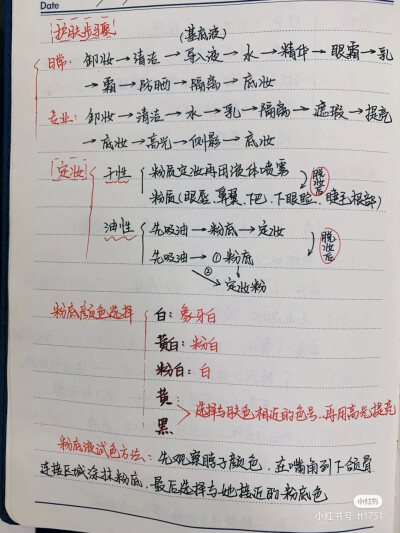 Date
护肤步骤
(基底液)
日常: 卸妆→清洁→导入液→水→精华→眼霜→乳
→霜→防晒→隔离→底妆
专业: 卸妆→清洁→水→乳→隔离→遮瑕→提亮
→底妆→高光→侧影→底妆
定妆
干性
粉底定妆再用液体喷雾
粉底(眼唇、鼻翼、下巴、下眼睑、睫毛根部)
脱妆后
油性
先吸油→粉底→定妆
先吸油→①粉底
②
定妆粉
脱妆后
粉底颜色选择
白: 象牙白
黄白: 粉白
粉白: 白
黄:
黑
选择与肤色相近的色号,再用高光提亮
粉底液试色方法: 先观察脖子颜色,在嘴角到下颌骨
连接区域涂抹粉底,最后选择与她接近的粉底色
小红书
小红书号: tt1751